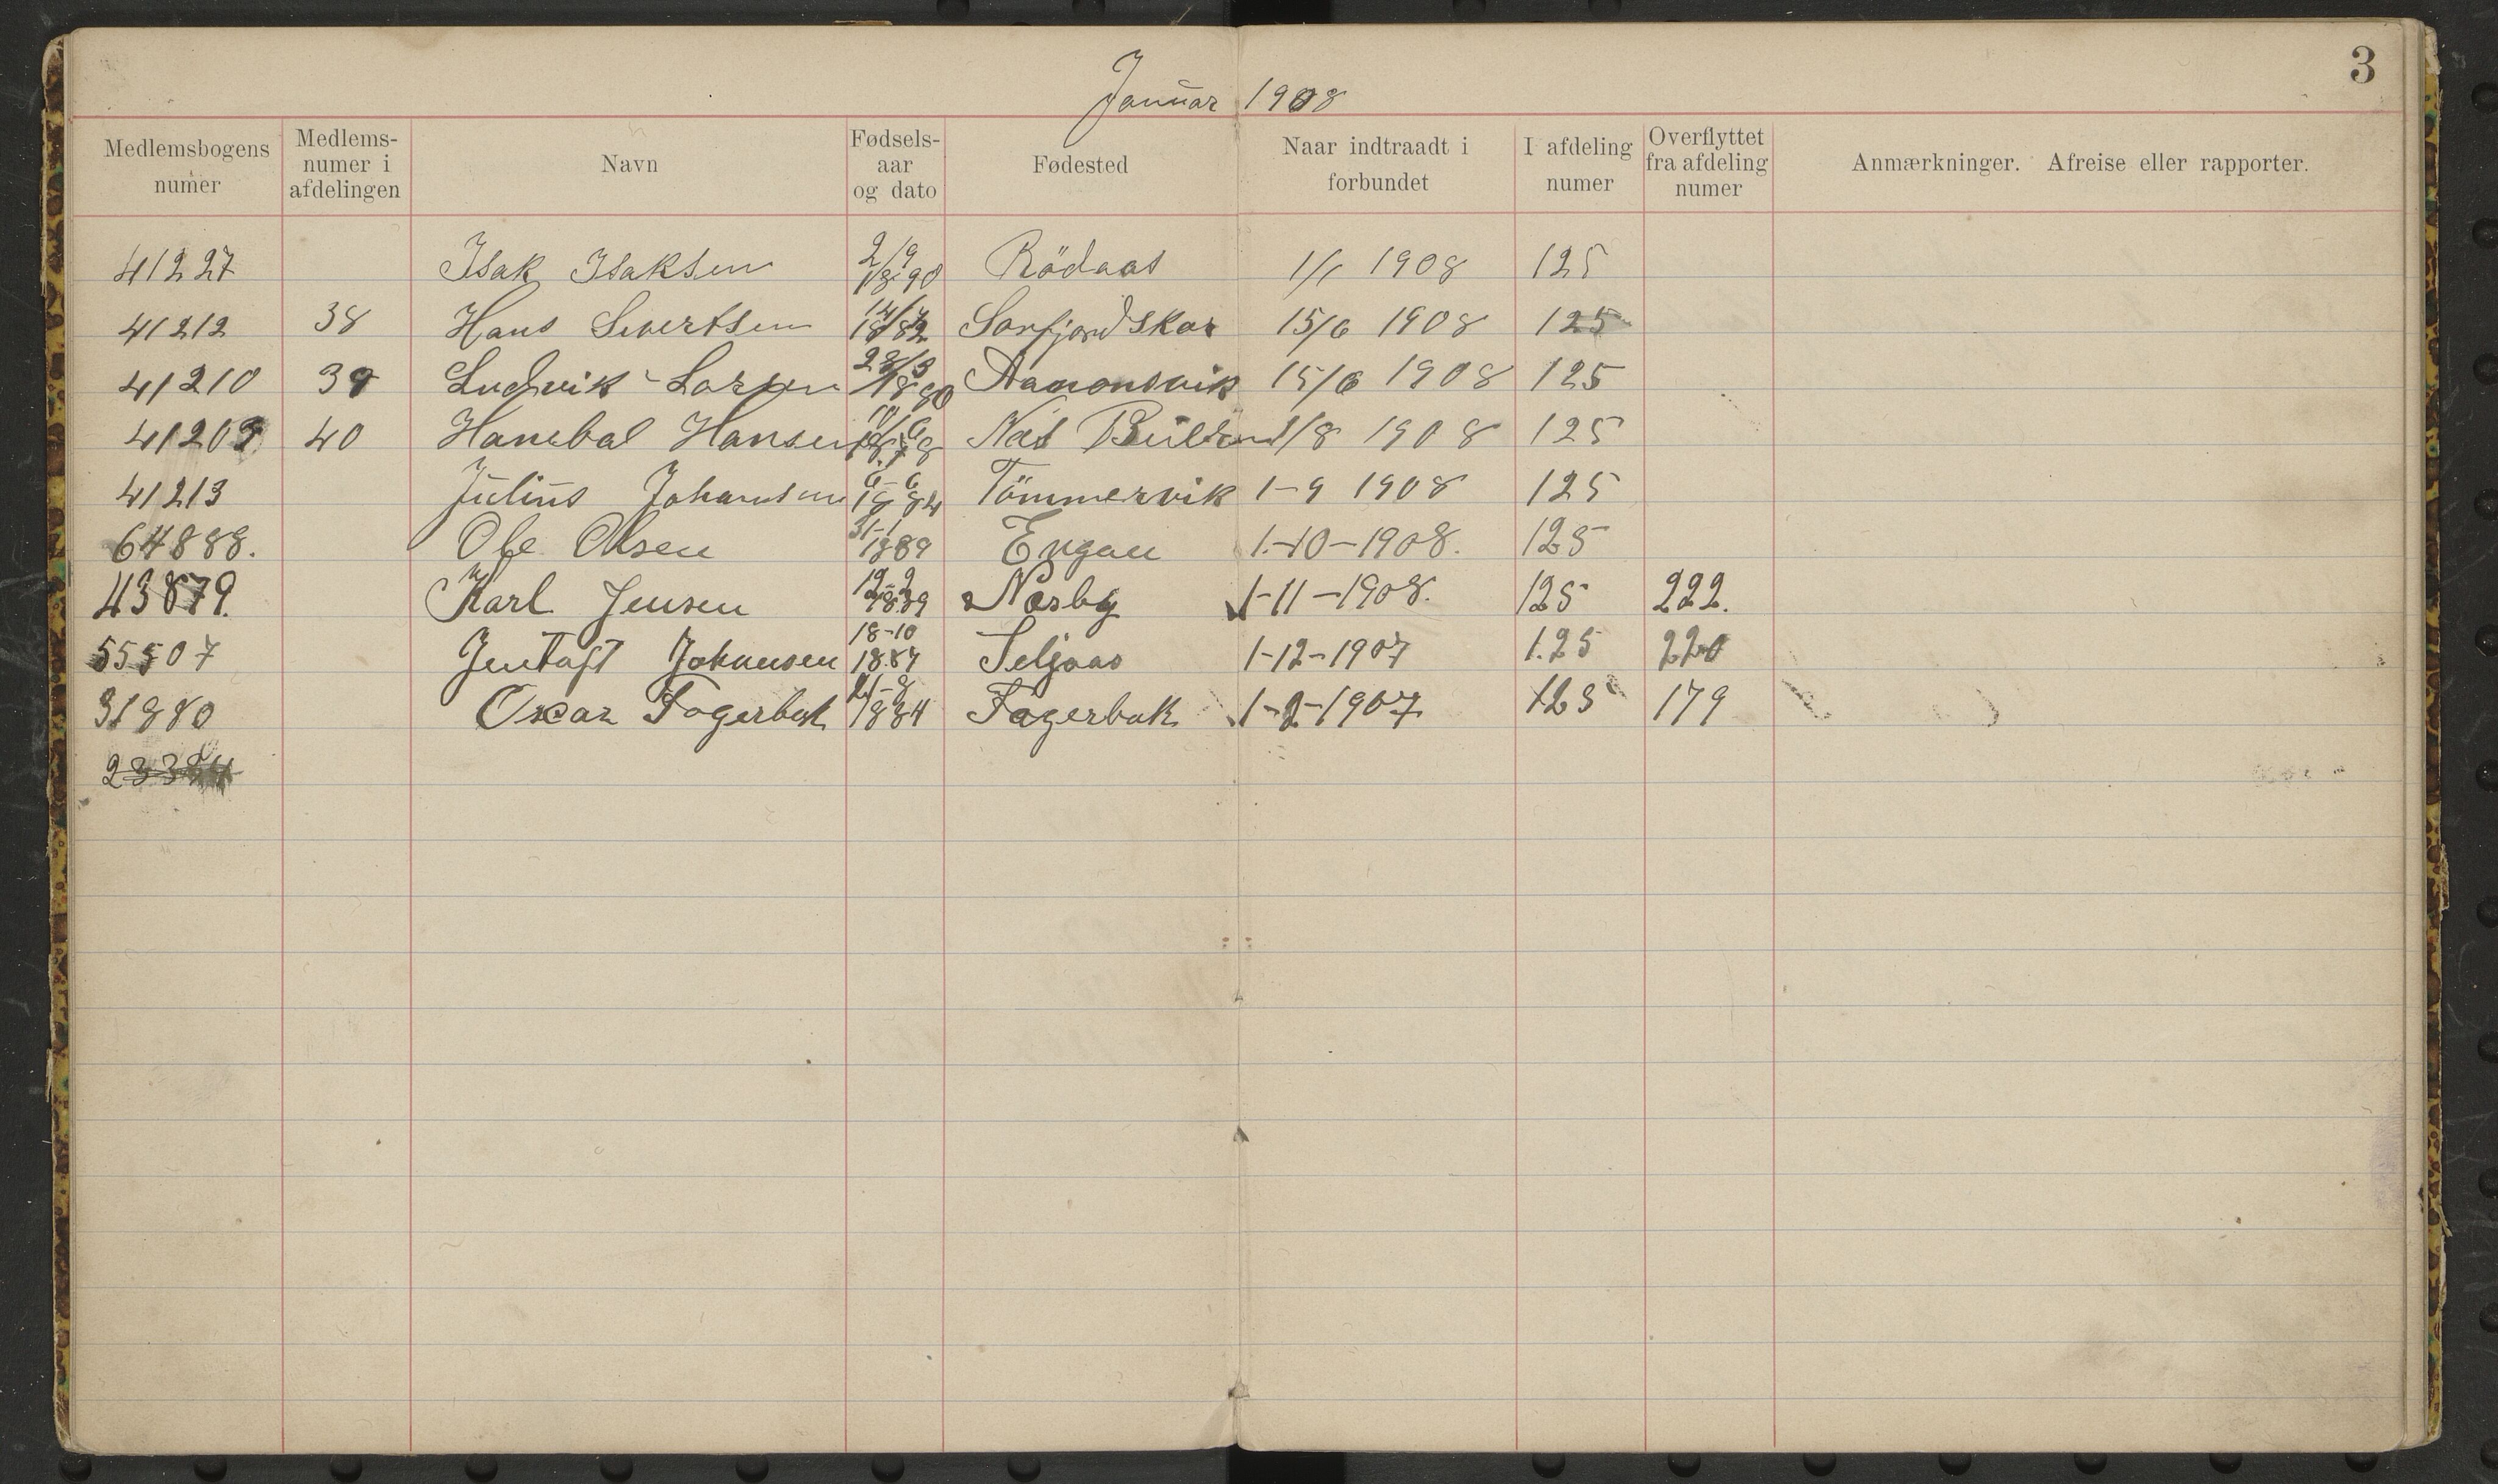 3
Januar 1908
Medlemsbogens numer Medlems-numer i afdelingen Navn Fødsels-aar og dato Fødested Naar indtraadt i forbundet I afdeling numer Overflyttet fra afdeling numer Anmærkninger. Afreise eller rapporter.
41227 Isak Isaksen 2/9 1890 Rödaas 1/1 1908 125
41212 38 Hans Sivertsen 14/4 1882 Sørfjordskar 15/6 1908 125
41210 39 Ludvik Larsen 28/3 1880 15/6 1908 125
41209 40 Hanibal Hansen 10/6 1878 1/8 1908 125
41213 Julius Johansen 6-6 1884 Tömmervik 1-9 1908 125
64888. Ole Olsen 31-1 1889 Engan 1-10-1908. 125
43879. Karl Jensen 12-2 1889 Nesby 1-11-1908. 125 222.
55507 Johansen 18-10 1887 Seljaas 1-12-1907 1.25 220
31880 Oscar Fagerbak 21-8 1884 Fagerbak 1-2-1907 125 179